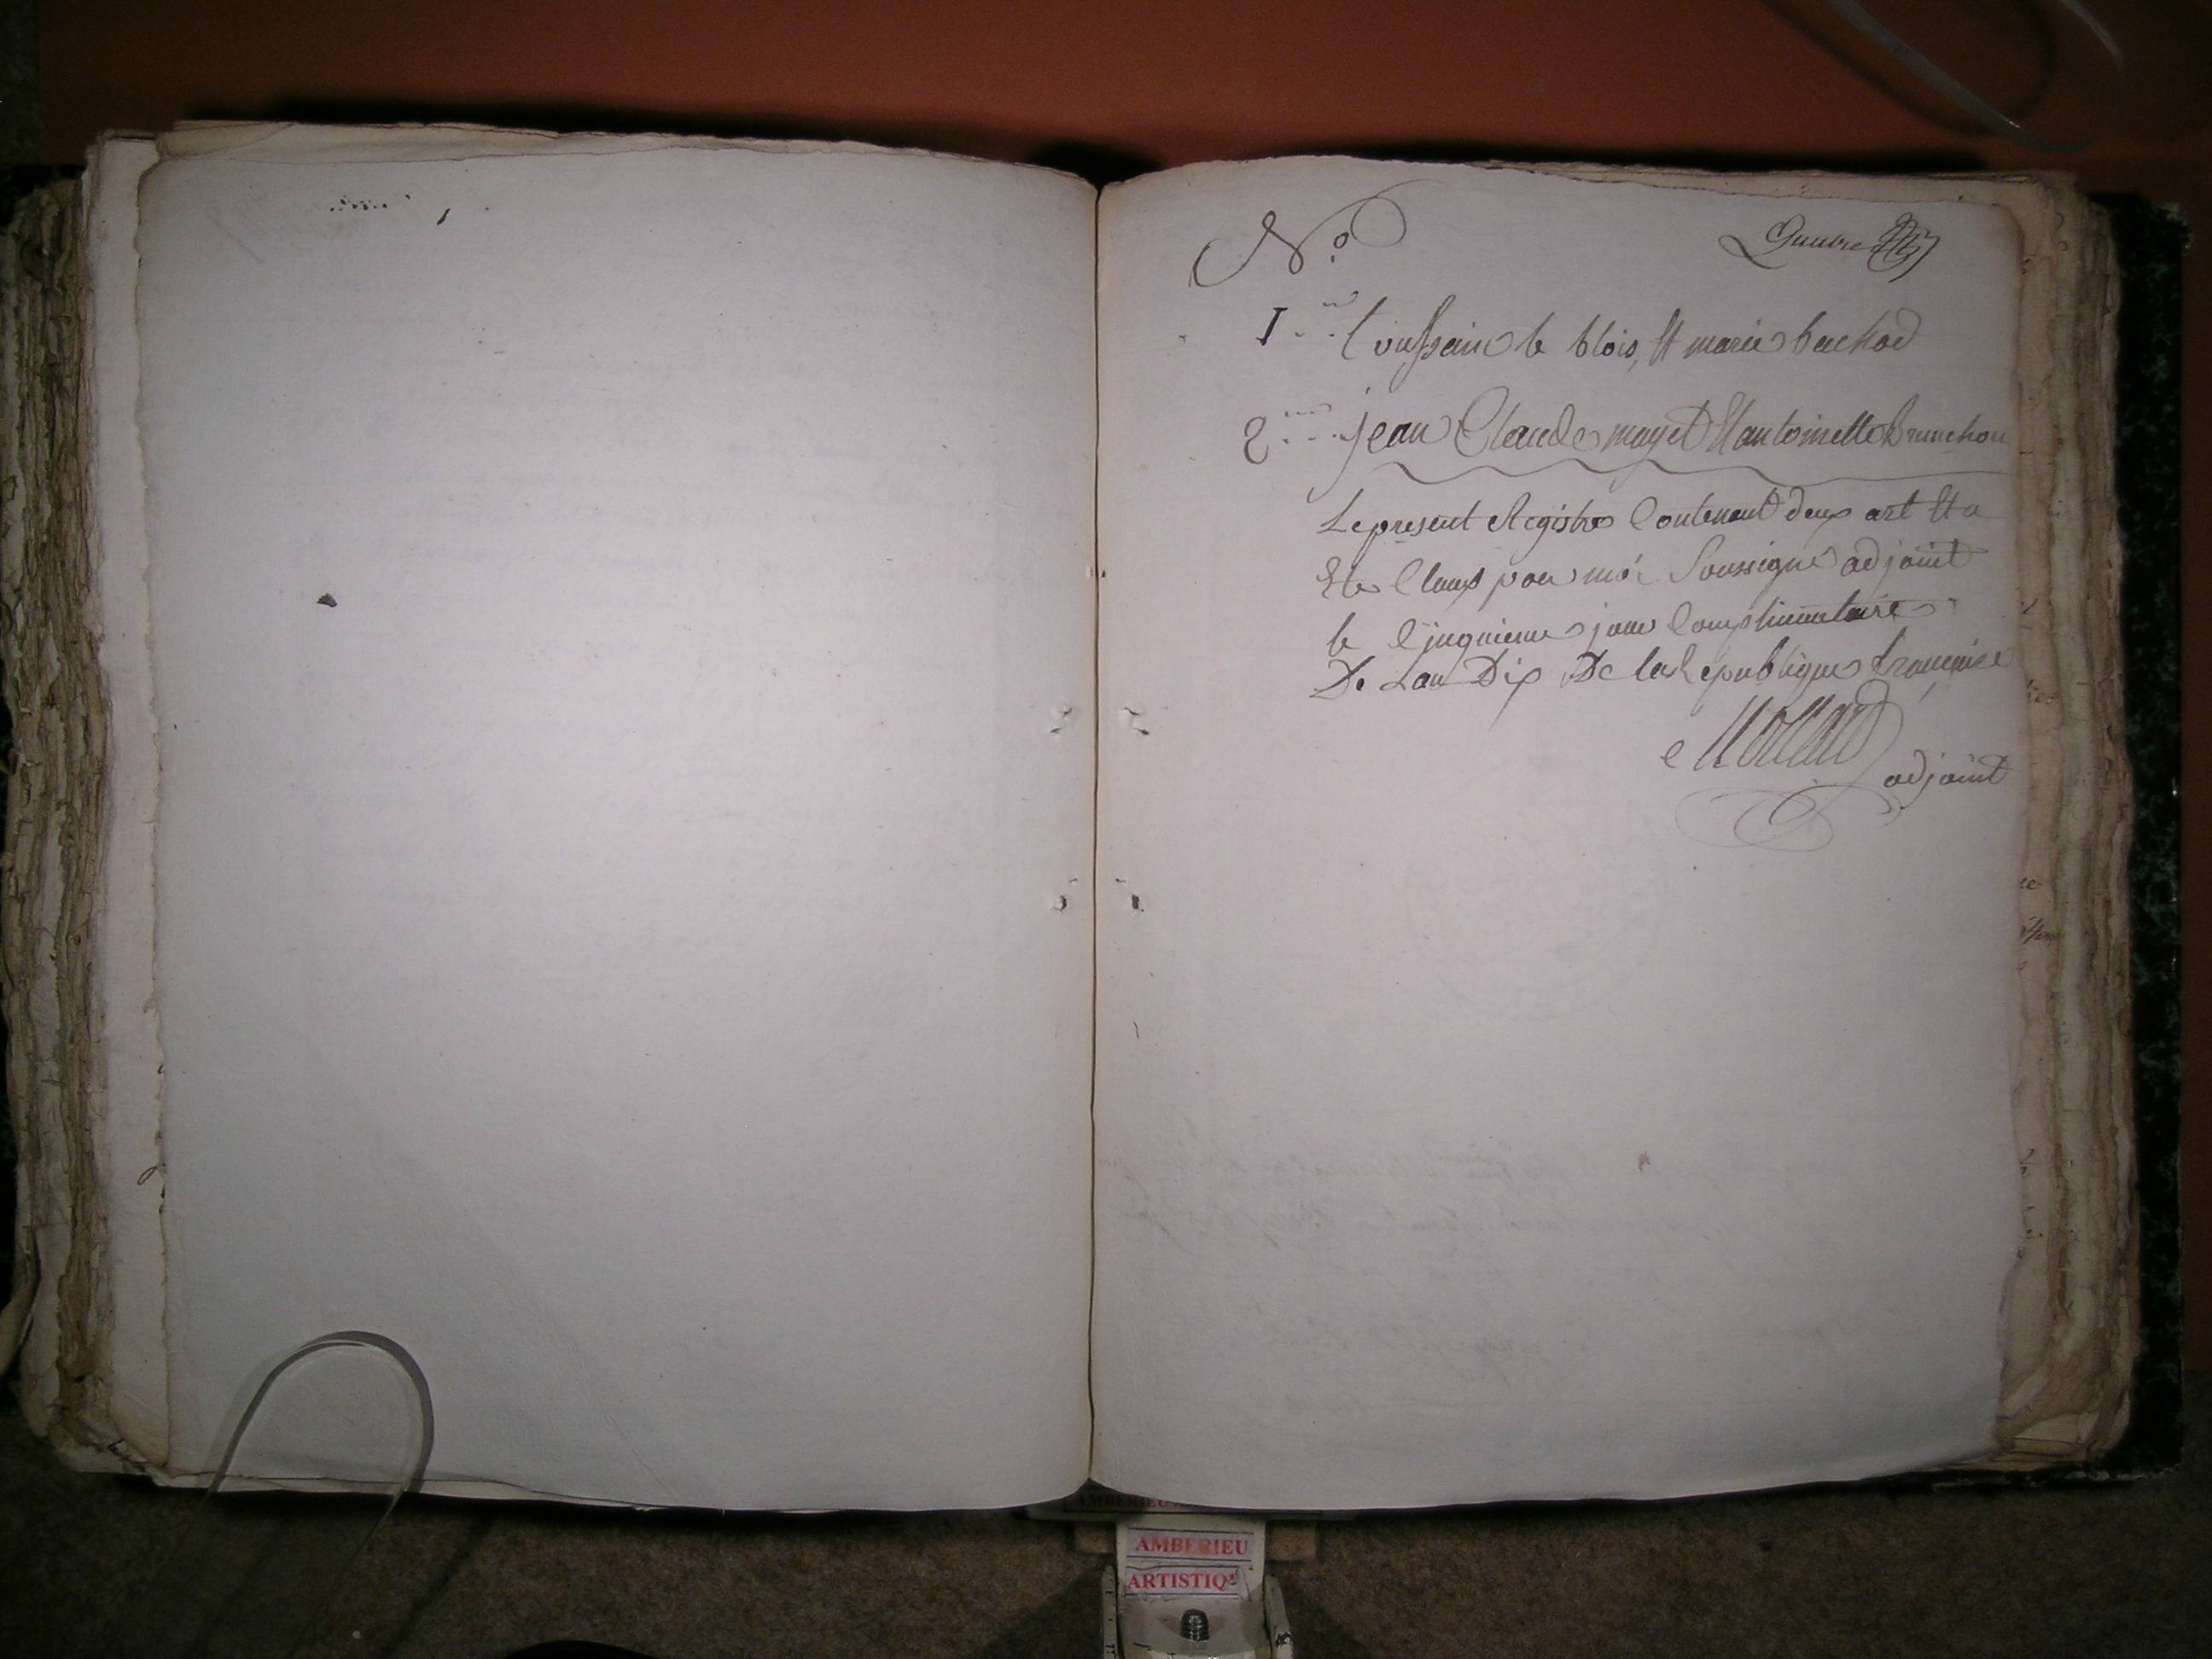 N.o
1 toussain le blois, et marie bachod
2 jean Claude mayet et antoinette
Le present Registre Contenant deux art et a
Ete Claux par moi Soussigné adjoint
le Cinquieme jour Complimentaire
De Lan Dix De la Republique française
adjoint
AMBERIEU
ARTISTIQ